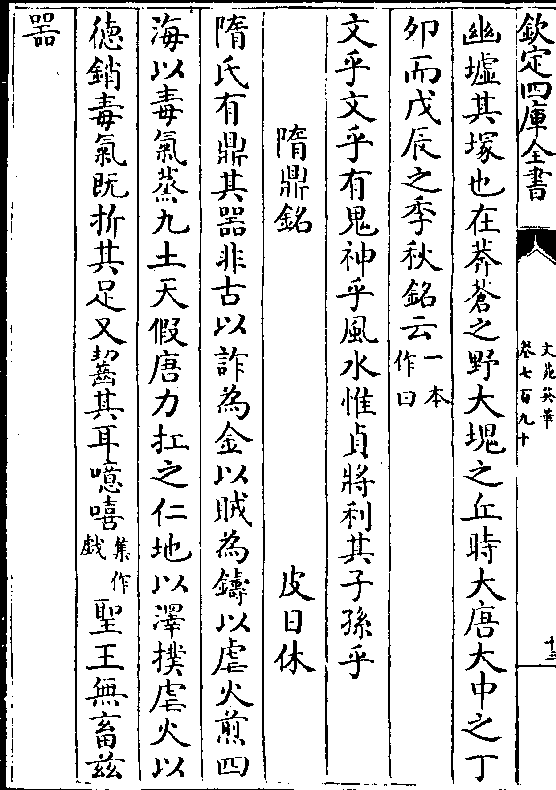 欽定四庫全書
文苑英華
卷七百九十
十三
幽墟其塚也在莽蒼之野大塊之丘時大唐大中之丁
夘而戊辰之季秋銘云一本作曰
文乎文乎有鬼神乎風水惟貞將利其子孫乎
隋鼎銘 皮日休
隋氏有鼎其器非古以詐為金以賊為鑄以虐火煎四
海以毒氣蒸九土天假唐力扛之仁地以澤撲虐火以
徳銷毒氣既折其足又齧其耳噫嘻集作戯聖王無畜茲
器